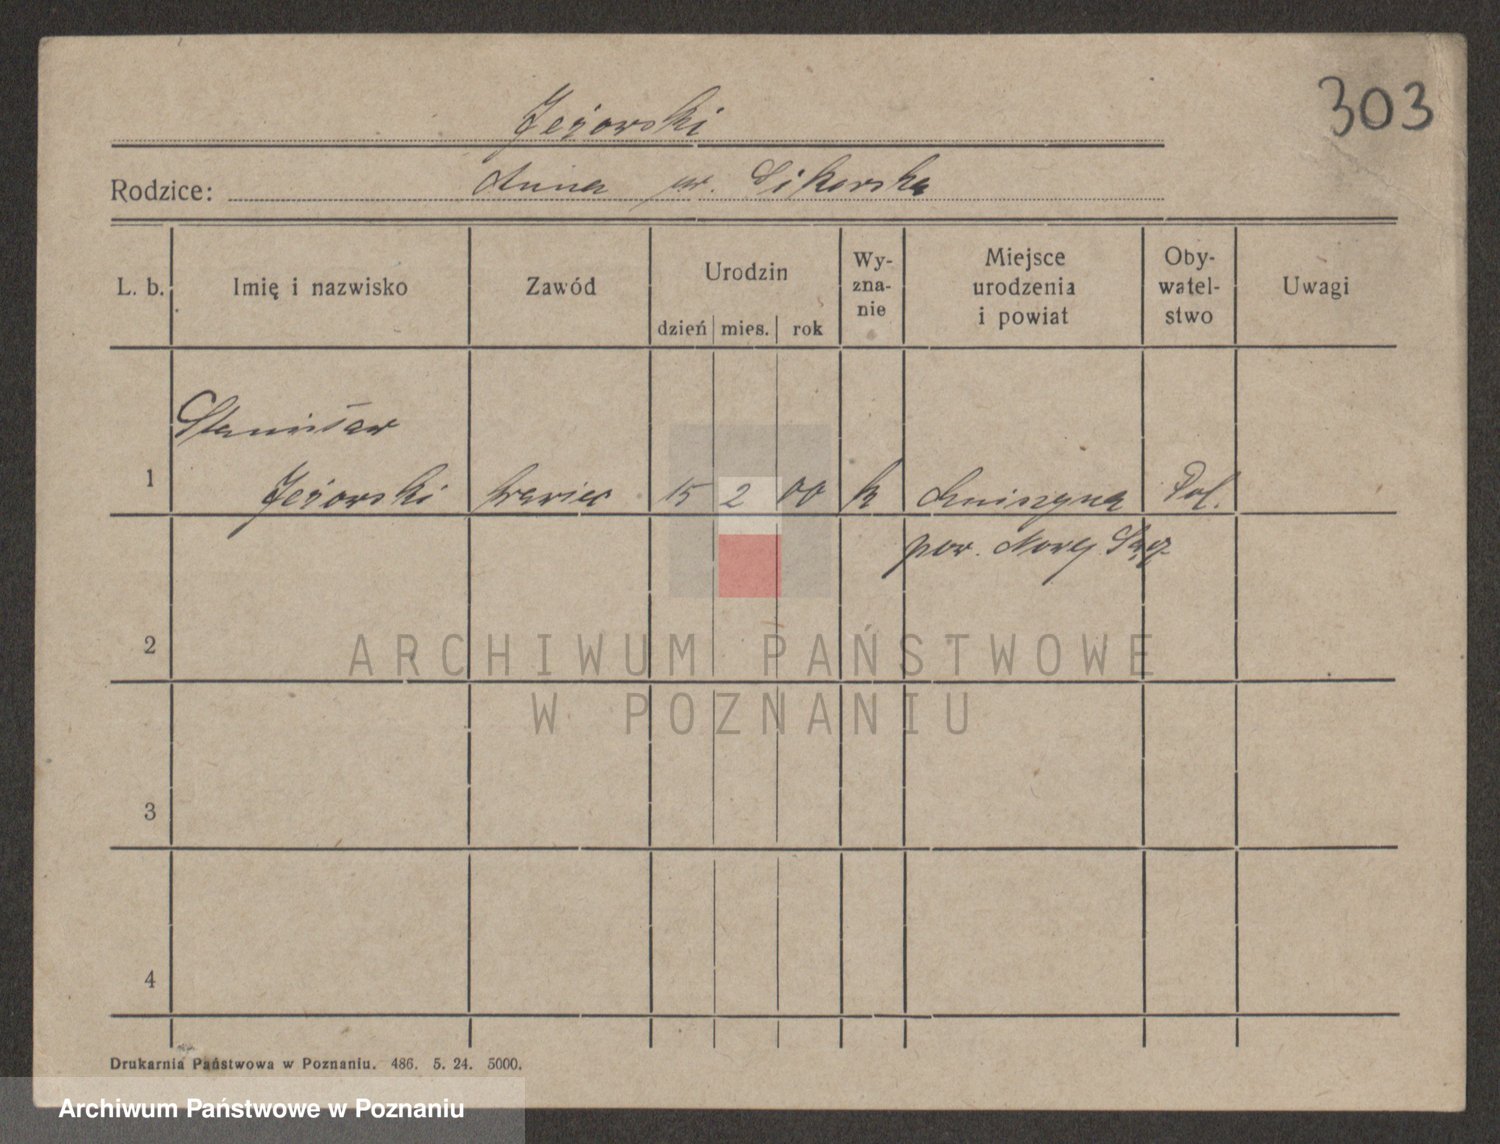 303
Jeżowski
Rodzice: Anna ur. Sikorska
L. b. Imię i nazwisko Zawód Urodzin dzień mies. rok Wy-zna-nie Miejsce urodzenia i powiat Oby-watel-stwo Uwagi
Stanisław
1 Jeżowski krawiec 15 2 00 k Pol.
pow. Nowy Sącz
2
ARCHIWUM PAŃSTWOWE
W POZNANIU
3
4
Drukarnia Państwowa w Poznaniu. 486. 5. 24. 5000.
Archiwum Państwowe w Poznaniu